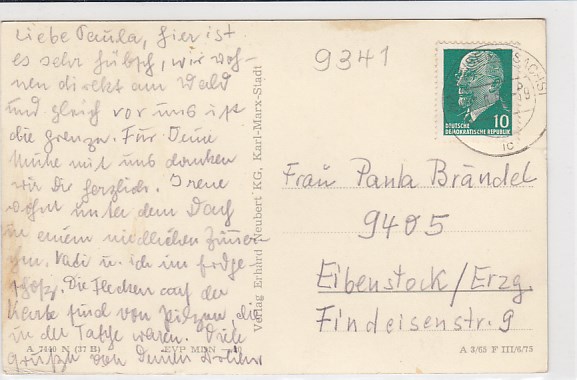 Liebe Paula, hier ist
es sehr hübsch, wir woh-
nen direkt am Wald
und gleich vor uns ist
die Grenze. Für Deine
Mühe mit uns danken
wir Dir herzlich. Irene
wohnt unter dem Dach
in einem niedlichen Zimmer-
chen, Vati u. ich im Erdge-
schoß. Die Flecken auf der
Karte sind von Pilzen, die
in der Tasche waren. Viele
Grüße von Deinen
A 7440 N (37 B) EVP MDN
Verlag Erhard Neubert KG, Karl-Marx-Stadt
9341
SACHS
10
DEUTSCHE
DEMOKRATISCHE REPUBLIK
Frau Paula Brändel
9405
Eibenstock/Erzg
Findeisenstr. 9
A 3/65 F III/6/75